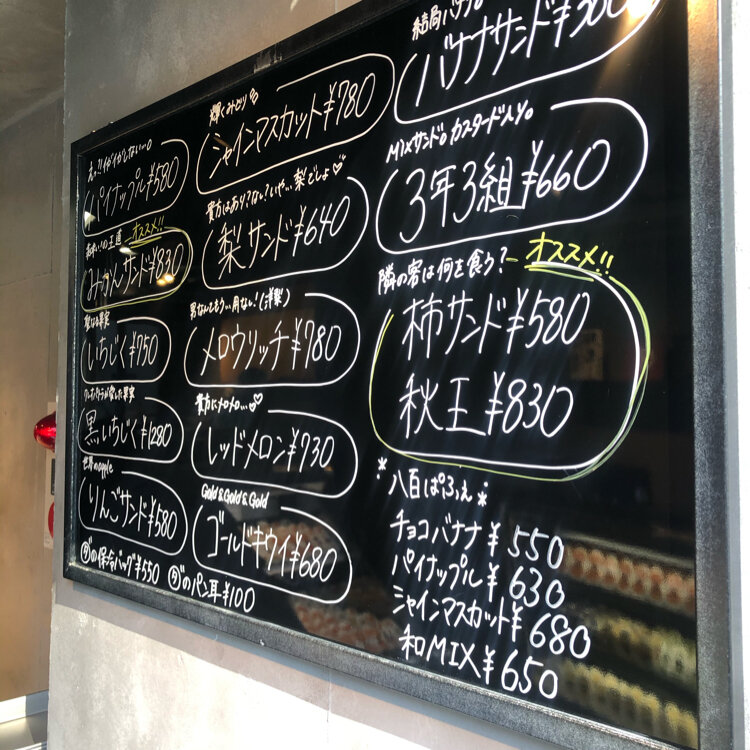 パイナップル¥580
オススメ!!
みかんサンド¥830
聖なる果実
いちじく¥750
黒いちじく¥1280
世界のapple
りんごサンド¥580
の保冷バッグ¥550
のパン耳¥100
輝くみどり
シャインマスカット¥780
貴方はあり?なし?いや…梨でしょ♡
梨サンド¥640
男なんてもう…用なし!(洋梨)
メロウリッチ¥780
貴方にメロメロ…♡
レッドメロン¥730
Gold&Gold&Gold
ゴールドキウイ¥680
結局バナナ。
バナナサンド¥500
MIXサンド。カスタード入り。
3年3組¥660
隣の客は何を食う?
オススメ!!
柿サンド¥580
秋王¥830
*八百ぱふぇ*
チョコバナナ¥550
パイナップル¥630
シャインマスカット¥680
和MIX¥650